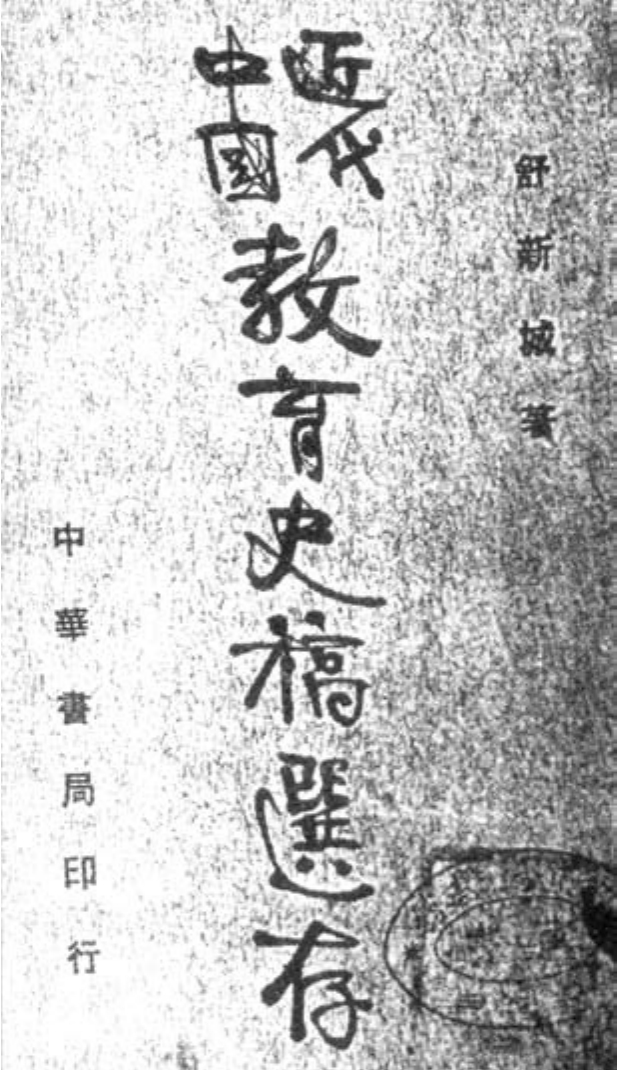 舒新城著
近代
中國
教育史稿選存
中華書局印行